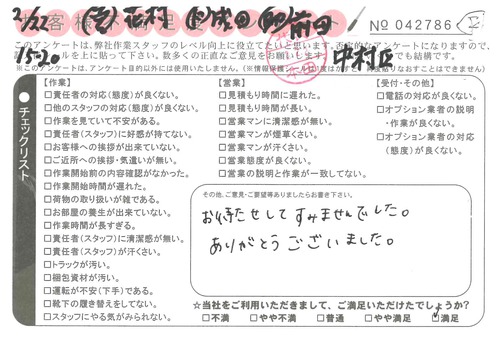 2/22 
15:20 中村区
№ 042786
このアンケートは、弊社作業スタッフのレベル向上に役立てたいと思います。
※このアンケートは、アンケート目的以外には使用いたしません。
チェックリスト
【作業】
□責任者の対応(態度)が良くない。
□他のスタッフの対応(態度)が良くない。
□作業を見ていて不安がある。
□責任者(スタッフ)に好感が持てない。
□お客様への挨拶が出来ていない。
□ご近所への挨拶・気遣いが無い。
□作業開始前の内容確認がなかった。
□作業開始時間が遅れた。
□荷物の取り扱いが雑である。
□お部屋の養生が出来ていない。
□作業時間が長すぎる。
□責任者(スタッフ)に清潔感が無い。
□責任者(スタッフ)が汗くさい。
□トラックが汚い。
□梱包資材が汚い。
□運転が不安(下手)である。
□靴下の履き替えをしてない。
□スタッフにやる気がみられない。
【営業】
□見積もり時間に遅れた。
□見積もり時間が長い。
□営業マンに清潔感が無い。
□営業マンが煙草くさい。
□営業マンが汗くさい。
□営業態度が良くない。
□営業の説明と作業が一致してない。
【受付・その他】
□電話の対応が良くない。
□オプション業者の説明
・作業が良くない。
□オプション業者の対応
(態度)が良くない。
その他、ご意見・ご要望等ありましたらお書き下さい。
お待たせしてすみませんでした。
ありがとうございました。
☆当社をご利用いただきまして、ご満足いただけたでしょうか?
□不満 □やや不満 □普通 □やや満足 □満足